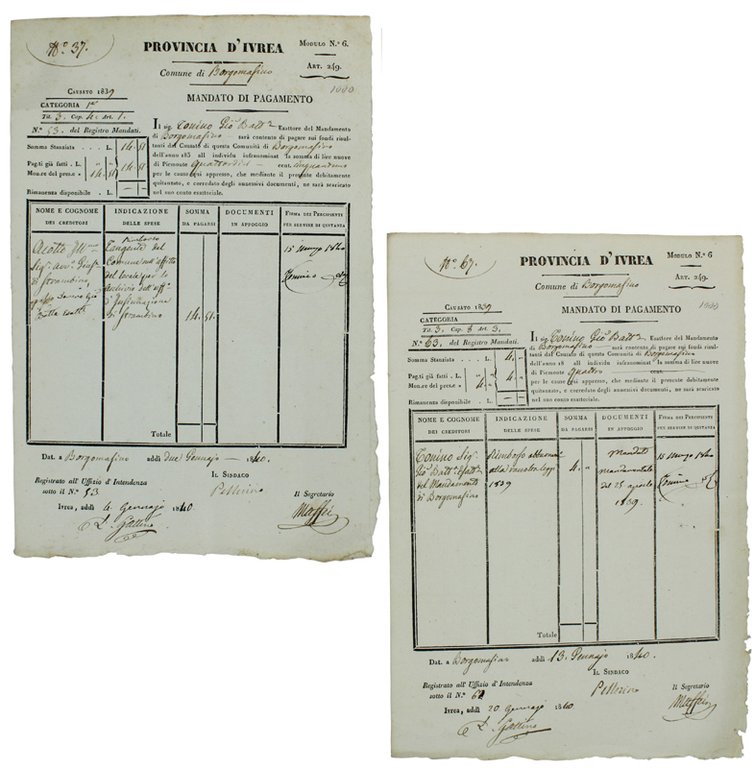 N.° 37.
PROVINCIA D'IVREA
MODULO N.° 6.
Comune di Borgomasino
ART. 249.
1000
CAUSATO 1839
MANDATO DI PAGAMENTO
CATEGORIA 1
Tit. 3. Cap. 4. Art. 1.
N.° 53. del Registro Mandati.
Somma Stanziata . L. 14. 51
Pag.ti già fatti . L. " "
Mon.ee del pres.e » 14. 51 14. 51
Rimanenza disponibile . L. — —
Il sig. Tonino Gio Batt.a Esattore del Mandamento
di Borgomasino — sarà contento di pagare sui fondi risul-
tanti dal Causato di questa Comunità di Borgomasino
dell'anno 183 all individu infrascominat la somma di lire nuove
di Piemonte Quattordici — cent. cinquantuno
per le cause qui appresso, che mediante il presente debitamente
quitanzato, e corredato degli annessivi documenti, ne sarà scaricato
nel suo conto esattoriale.
NOME E COGNOME
DEI CREDITORI
INDICAZIONE
DELLE SPESE
SOMMA
DA PAGARSI
DOCUMENTI
IN APPOGGIO
FIRMA DEI PERCIPIENTI
PER SERVIRE DI QUITANZA
Rimborso
Tangente del
Comune sull'affitto
del locale per lo
Archivio dell'uff.o
d'Insinuazione
di Strambino
di Strambino
14. 51.
15 Marzo 1840
Tonino
Totale
Dat. a Borgomasino addì due Gennajo 1840.
IL SINDACO
Registrato all'Uffizio d'Intendenza
sotto il N.° 53
Pellerino
Il Segretario
Ivrea, addì 4 Gennajo 1840
Maffei
Gattino
N.° 67.
PROVINCIA D'IVREA
MODULO N.° 6
Comune di Borgomasino
ART. 249.
1000
CAUSATO 1839
MANDATO DI PAGAMENTO
CATEGORIA
Tit. 3. Cap. 8 Art. 3.
N.° 63. del Registro Mandati.
Somma Stanziata . L. 4. "
Pag.ti già fatti . L. " "
Mon.ee del pres.e » 4. " 4. "
Rimanenza disponibile . L. — —
Il sig. Tonino Gio Batt.a Esattore del Mandamento
di Borgomasino — sarà contento di pagare sui fondi risul-
tanti dal Causato di questa Comunità di Borgomasino
dell'anno 18 all individu infrascominat la somma di lire nuove
di Piemonte Quattro cent.
per le cause qui appresso, che mediante il presente debitamente
quitanzato, e corredato degli annessivi documenti, ne sarà scaricato
nel suo conto esattoriale.
NOME E COGNOME
DEI CREDITORI
INDICAZIONE
DELLE SPESE
SOMMA
DA PAGARSI
DOCUMENTI
IN APPOGGIO
FIRMA DEI PERCIPIENTI
PER SERVIRE DI QUITANZA
Tonino Sig.
Gio Batt.a Esatt.e
del Mandamento
di Borgomasino
Rimborso
alla leggi
1839
4. "
Mandato
mandamentale
del 25 agosto
1839.
15 Marzo 1840
Tonino
Totale
Dat. a Borgomasino addì 13. Gennajo 1840.
IL SINDACO
Registrato all'Uffizio d'Intendenza
sotto il N.° 62
Pellerino
Il Segretario
Ivrea, addì 20 Gennajo 1840
Maffei
Gattino